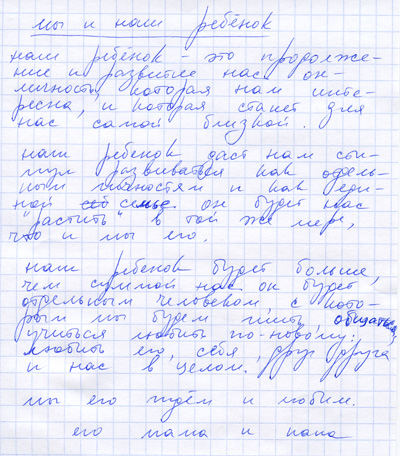 мы и наш ребёнок
наш ребёнок - это продолже-
ние и развитие нас. он -
личность, которая нам инте-
ресна, и которая станет для
нас самой близкой.
наш ребёнок даст нам сти-
мул развиваться как отдель-
ным личностям и как еди-
ной семье. он будет нас
"растить" в той же мере,
что и мы его.
наш ребёнок будет больше,
чем суммой нас. он будет
отдельным человеком, с кото-
рым мы будем общаться,
учиться любить по-новому:
любить его, себя, друг друга
и нас в целом.
мы его ждём и любим.
его мама и папа